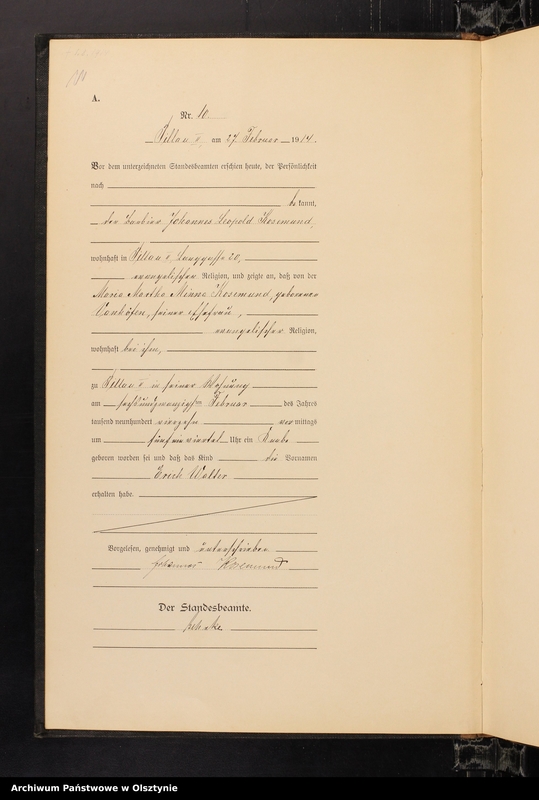 A.
Nr. 10.
Pillau II, am 27. Februar 1914.
Vor dem unterzeichneten Standesbeamten erschien heute, der Persönlichkeit
nach
bekannt,
der Johannes Leopold Rosemund,
wohnhaft in Pillau II, Langgasse 20,
evangelischer Religion, und zeigte an, daß von der
Maria Martha Minna Rosemund, geborenen
seiner Ehefrau,
evangelischer Religion,
wohnhaft bei ihm,
zu Pillau II in seiner Wohnung
am sechsundzwanzigsten Februar des Jahres
tausend neunhundert vierzehn vormittags
um fünf ein viertel Uhr ein Knabe
geboren worden sei und daß das Kind die Vornamen
Erich Walter
erhalten habe.
Vorgelesen, genehmigt und unterschrieben
Johannes Rosemund
Der Standesbeamte.
Archiwum Państwowe w Olsztynie